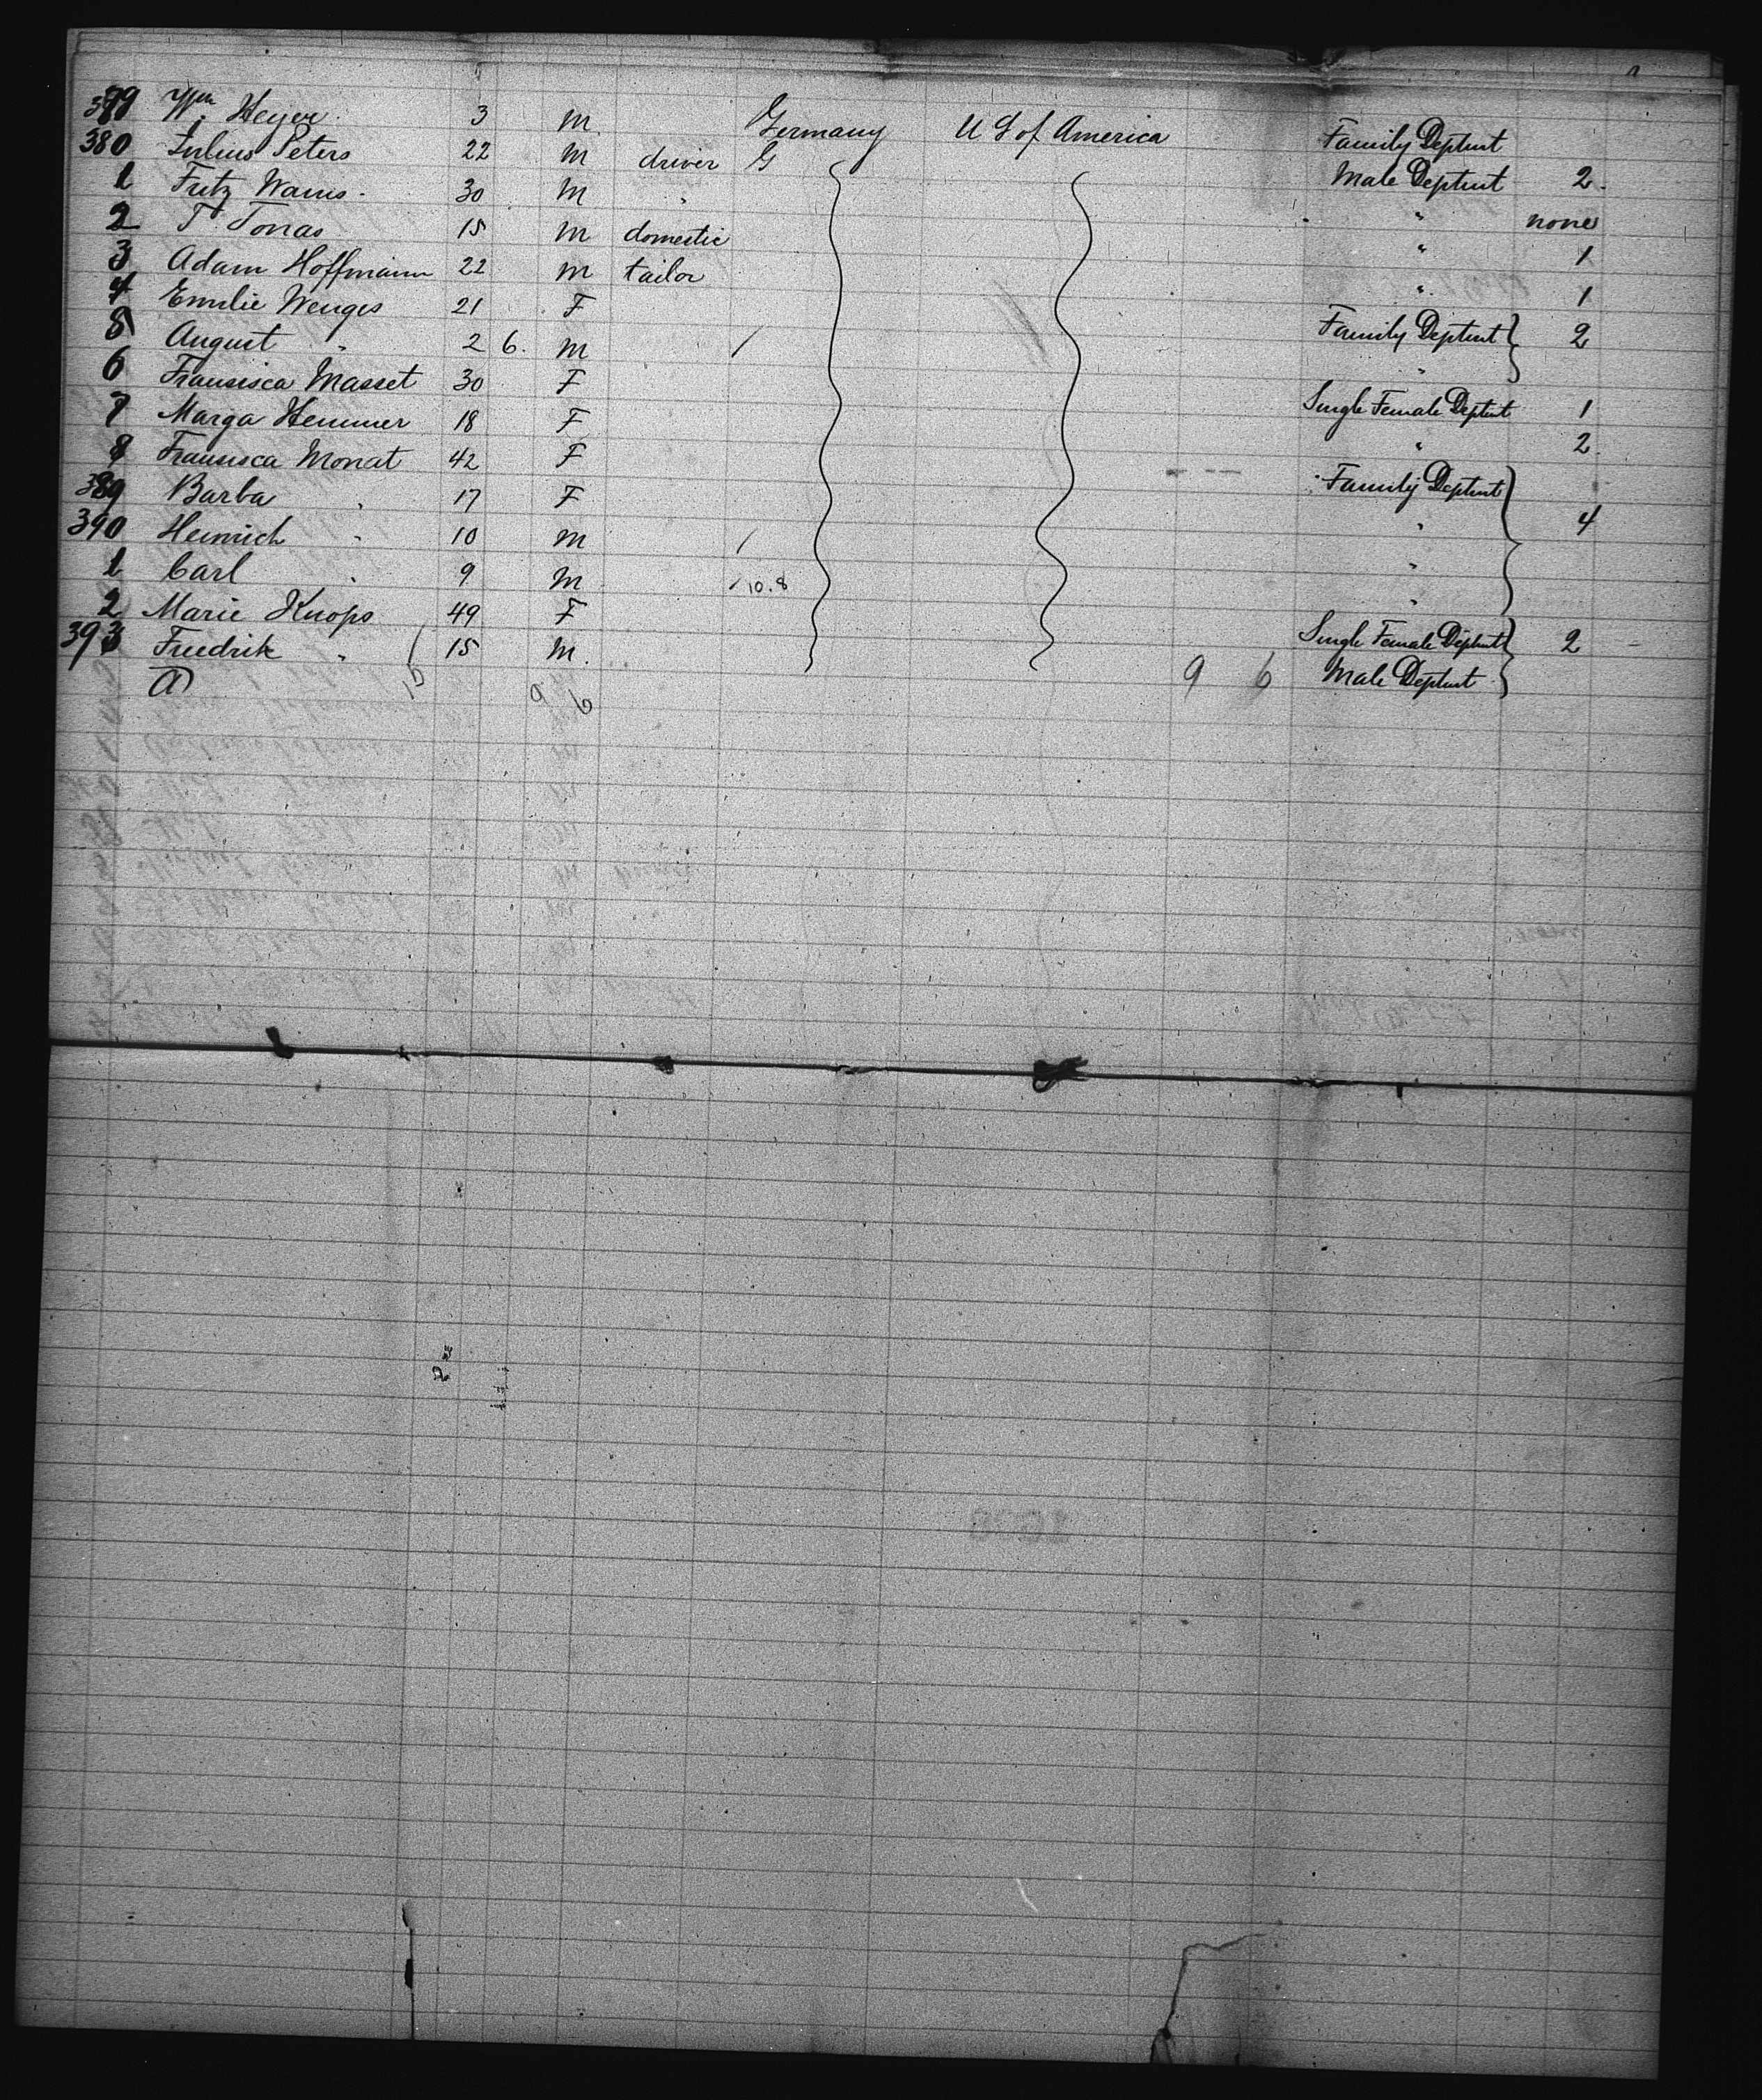 379 Wm. Heyer. 3 M. Germany U S of America Family Deptmt
380 Julius Peters 22 M driver G Male Deptmt 2.
1 Fritz Warns. 30 M " " none
2 T. Tonas 15 M domestic " 1
3 Adam Hoffmann 22 M tailor " 1
4 Emilie Wenges 21 F Family Deptmt 2
5 August " 2 6. M / "
6 Fransisca Masset 30 F Single Female Deptmt 1
7 Marga Hemmer 18 F " 2.
8 Fransisca Monat 42 F Family Deptmt
389 Barba " 17 F " 4
390 Heinrich " 10 M / "
1 Carl " 9 M 10.8 "
2 Marie Knops 49 F Single Female Deptmt 2
393 Friedrik " 15 M. Male Deptmt
15 9 6 9 6